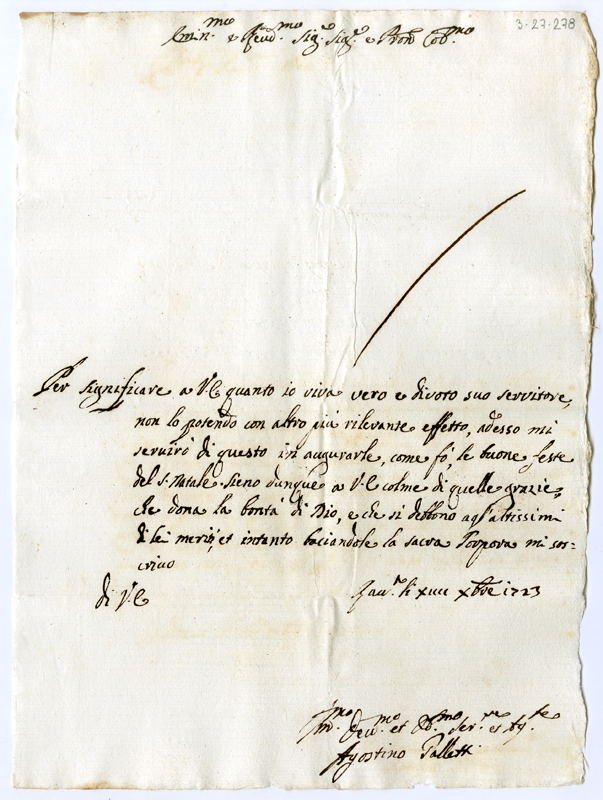 3-27-278
Emin.mo e Revd.mo Sig.r Sig.r e Pron Col.mo
Per significare a V.E. quanto io viva vero e divoto suo servitore,
non lo potendo con altro più rilevante effetto, adesso mi
servirò di questo in augurarle, come fò, le buone feste
del S. Natale. Sieno dunque a V.E. colme di quelle grazie,
che dona la bontà di Dio, e che si debbono agl'altissimi
di lei meriti, et intanto baciandole la sacra Porpora mi sos-
crivo
di V.E.
li xbre 1723
Dev.mo et Ob.mo Ser.re et
Agostino